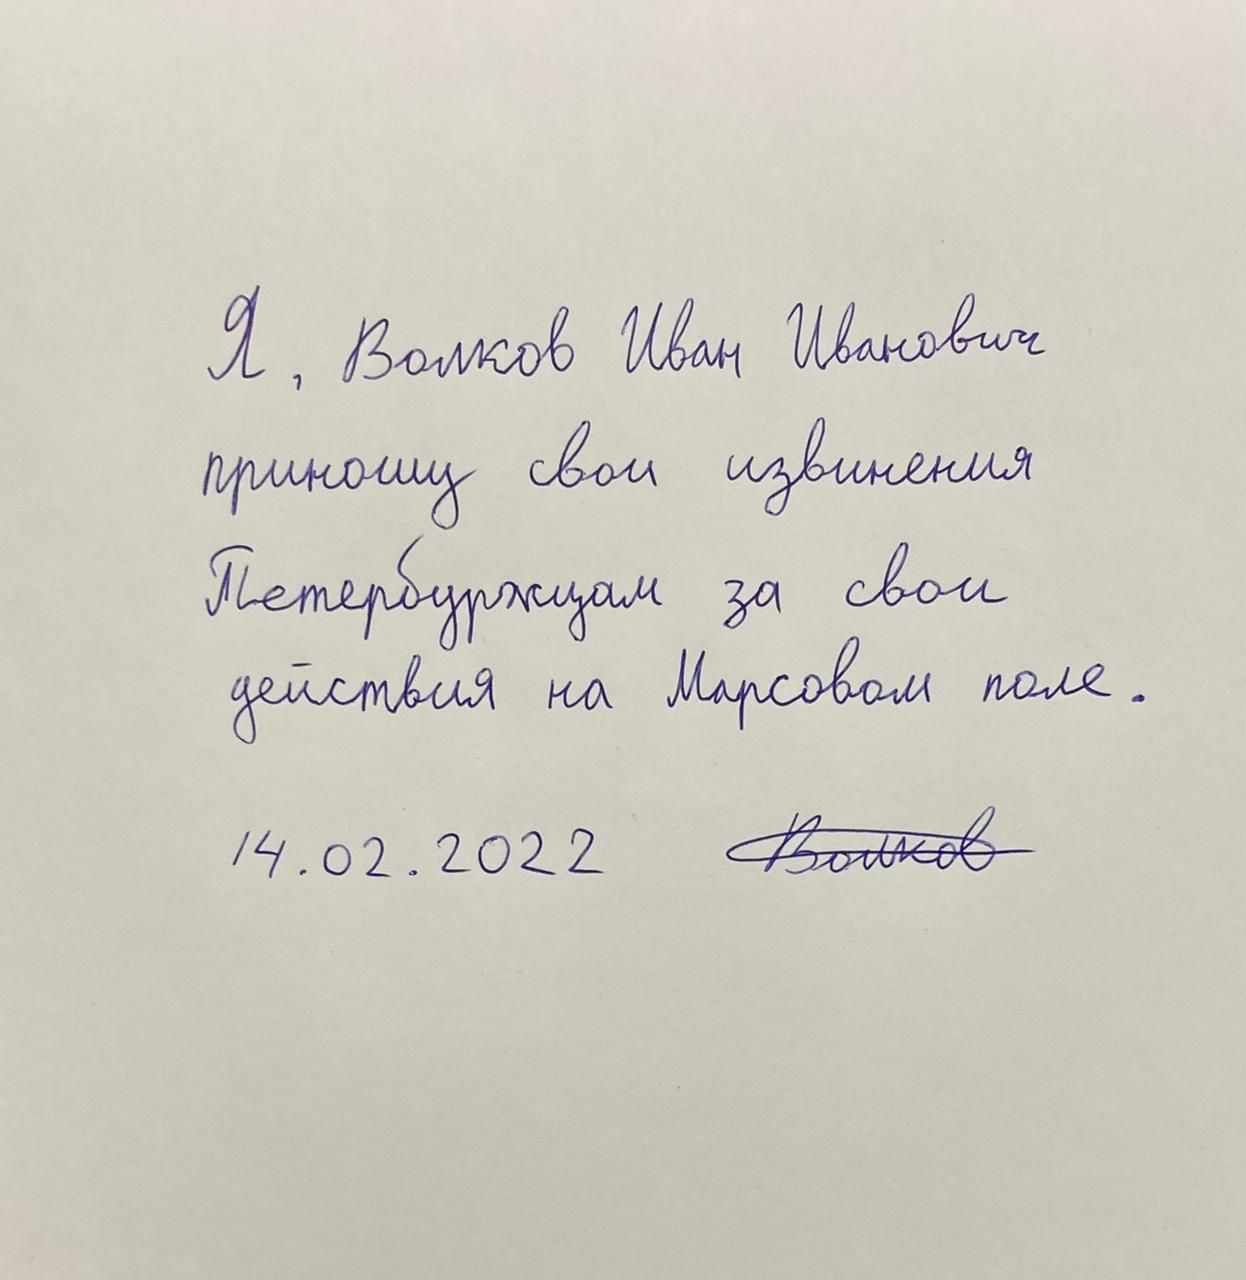 Я, Волков Иван Иванович
приношу свои извинения
Петербуржцам за свои
действия на Марсовом поле.
14.02.2022 Волков